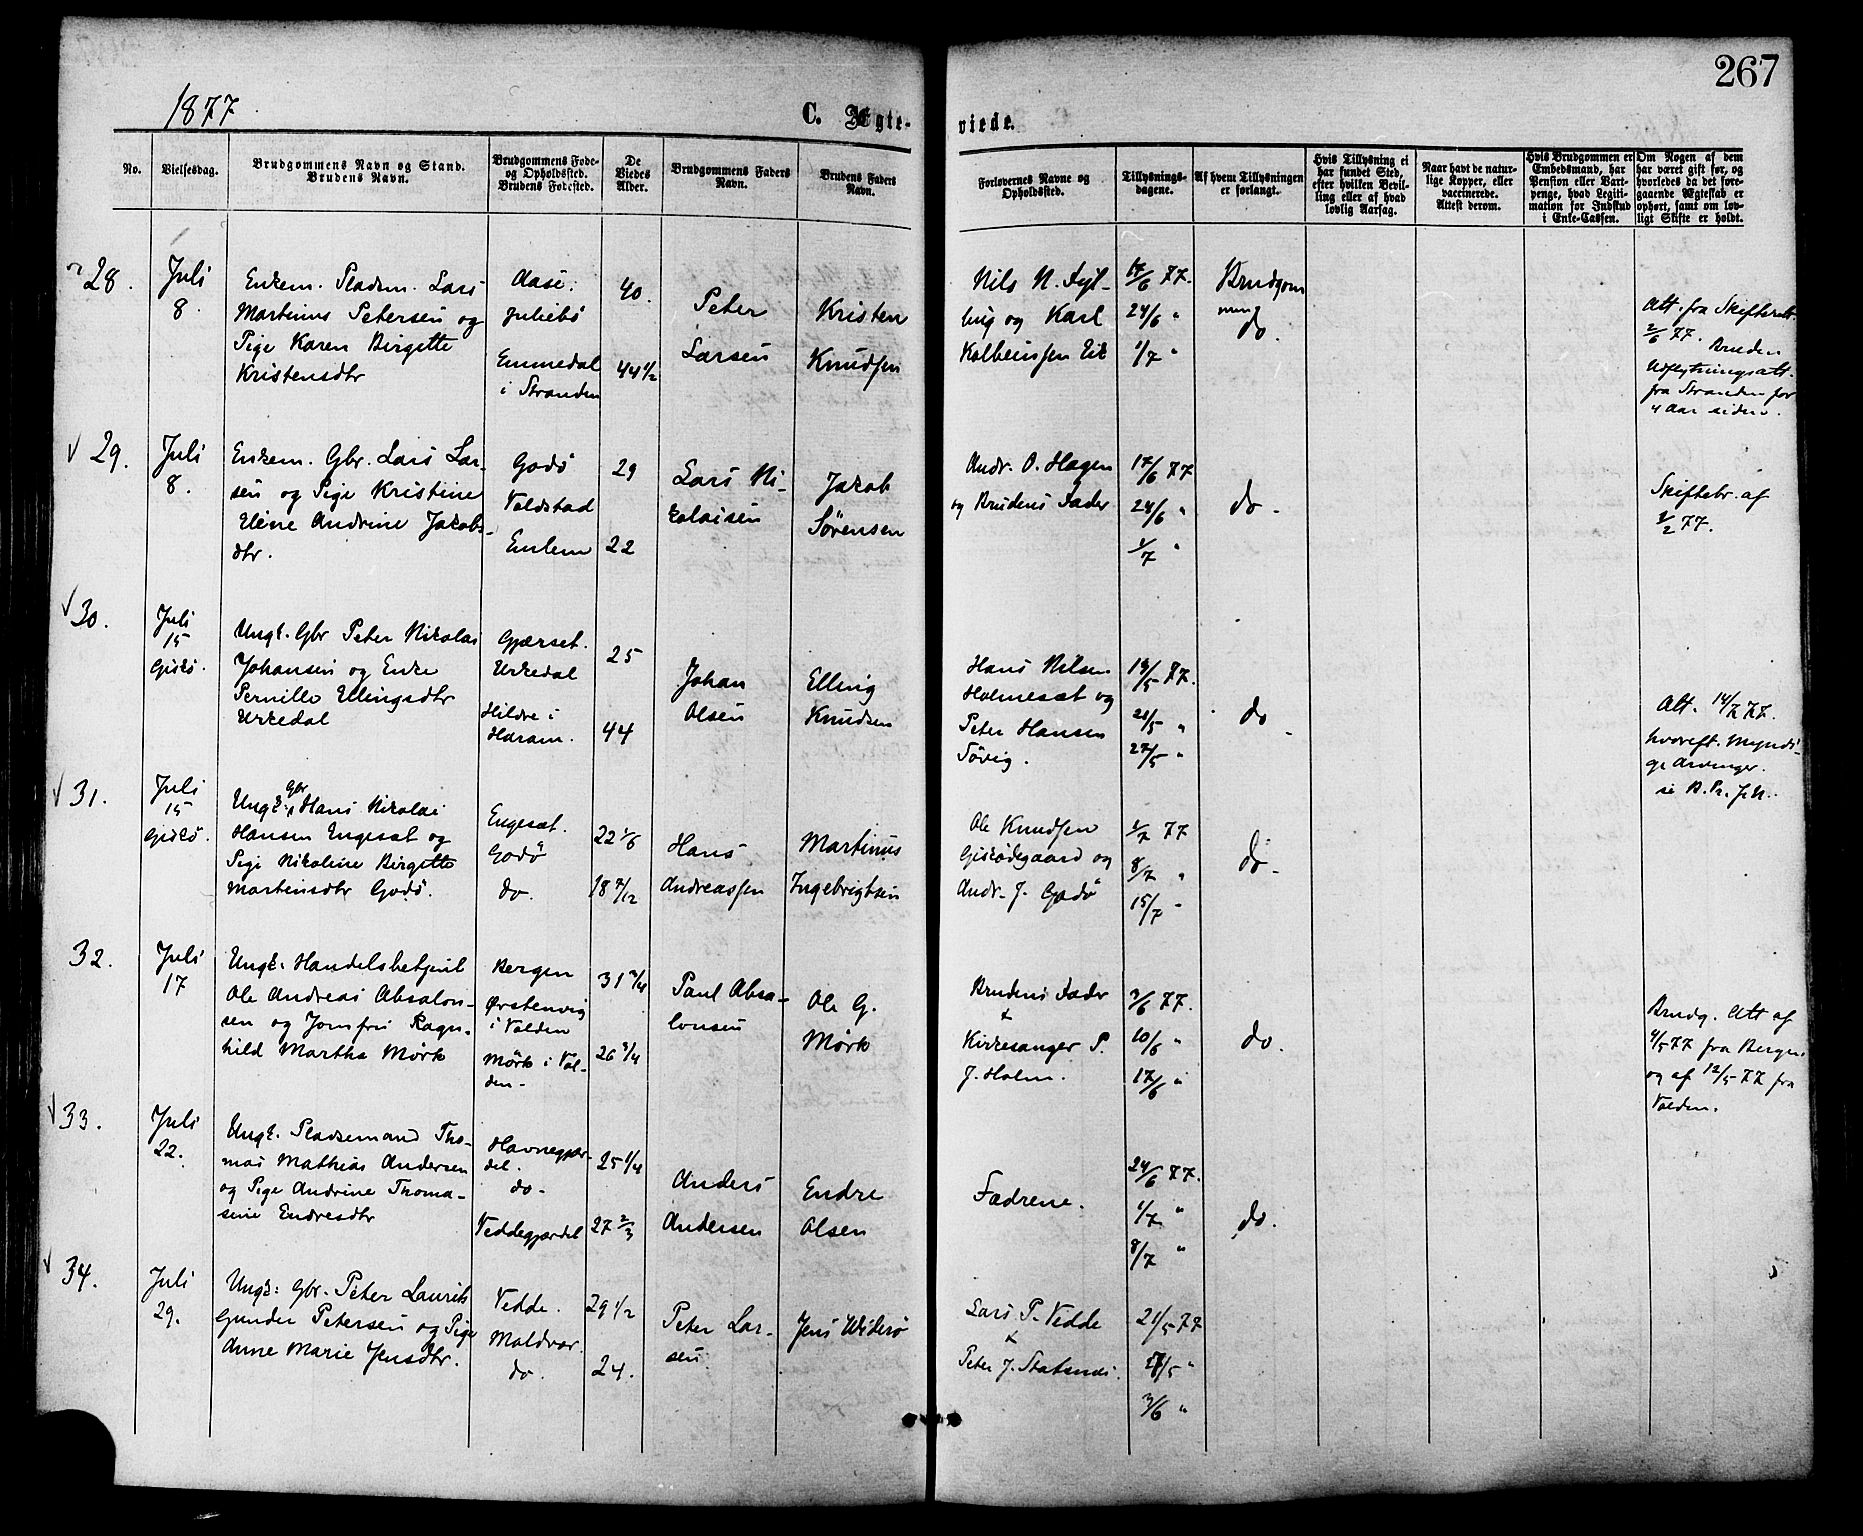 267
1877
C. Ægte-
viede.
No.
Vielsesdag.
Brudgommens Navn og Stand.
Brudens Navn.
Brudgommens Føde-
og Opholdssted.
Brudens Fødested.
De
Viedes
Alder.
Brudgommens Faders
Navn.
Brudens Faders
Navn.
Forlovernes Navne og
Opholdssted.
Tillysnings-
dagene.
Af hvem Tillysningen
er forlangt.
Hvis Tillysning ei
har fundet Sted,
efter hvilken Bevil-
ling eller af hvad
lovlig Aarsag.
Naar havt de natur-
lige Kopper, eller
vaccinerede.
Attest derom.
Hvis Brudgommen er
Embedsmand, har
Pension eller Vart-
penge, hvad Legiti-
mation for Indskud
i Enke-Cassen.
Om Nogen af dem
har været gift før, og
hvorledes da det fore-
gaaende Ægteskab er
ophørt, samt om lov-
ligt Skifte er holdt.
28.
Juli
8.
Enkem. Pladsm. Lars
Martinus Petersen og
Pige Karen Birgitte
Kristensdtr
Aase.
Juliebø
Emmedal
i Stranden
40.
44 1/2
Peter
Larsen
Kristen
Knudsen
Nils N.
og Karl
Kolbeinsen
17/6 77.
24/6 "
1/7 "
Brudgom
men
do.
Att. fra Skifterett.
2/6 77. Bruden
Udflytningsatt.
fra Stranden for
4 Aar siden.
29.
Juli
8.
Enkem. Gbr. Lars Lar-
sen og Pige Kristine
Eline Andrine Jakobs-
dtr.
Godø
Valdstad
Emlem
29
22
Lars Ni-
kolaisen
Jakob
Sørensen
Andr. O. Hagen
og Brudens Fader
17/6 77
24/6 "
1/7 "
do.
Skiftebr. af
1/2 77.
30.
Juli
15
Giskø.
Ungk. Gbr Peter Nikolai
Johansen og Enke
Pernille Ellingsdtr
Urkedal
Gjærset.
Urkedal
Hildre i
Haram.
25
44
Johan
Olsen
Elling
Knudsen
Hans Nilsen
Holmeset og
Peter Hansen
Søvig.
/5 77.
21/5 "
27/5 "
do
Att. 14/7 77.
hvoreft. Myndi-
ge Arvinger.
31.
Juli
15
Giskø.
Ungk: Gbr Hans Nikolai
Hansen Engeset og
Pige Nikoline Birgitte
Martinsdtr Godø.
Engeset.
Godø
do.
22 1/6
18 7/12
Hans
Andreassen
Martinus
Ingebrigtsen
Ole Knudsen
Giskødegaard og
Andr. J. Godø
1/7 77
8/7 "
15/7 "
do.
32.
Juli
17
Ungk. Handelsbetjent
Ole Andreas Absalon-
sen og Jomfru Ragn-
hild Martha Mørk
Bergen
Ørstenvig
i Volden
Mørk i Vol-
den.
31 3/4
26 3/4
Paul Absa-
lonsen
Ole G.
Mørk
Brudens Fader
&
Kirkesanger P.
J. Holm.
3/6 77.
10/6 "
17/6 "
do.
Brudg. Att af
4/5 77 fra Bergen
og af 12/5 77 fra
Volden.
33.
Juli
22.
Ungk. Pladsemand Tho-
mas Mathias Andersen
og Pige Andrine Thoma-
sine Endresdtr
Havnegjær-
del.
do.
Veddegjærdet
25 1/4
27 2/3
Anders
Andersen
Endre
Olsen
Fædrene.
24/6 77.
1/7 "
8/7 "
do.
34.
Juli
29.
Ungk: Gbr. Peter Laurits
Gunder Petersen og Pige
Anne Marie Jensdtr.
Vedde.
Moldvær.
do.
29 1/2
24.
Peter Lar-
sen.
Jens Widerø
Lars P. Vedde
&
Peter J.
21/5 77
/5 "
3/6 "